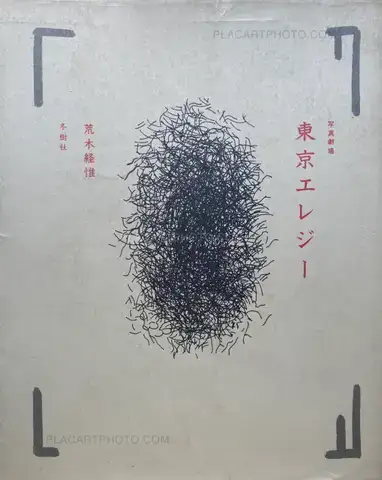 PLACARTPHOTO.COM
写真劇場
東京エレジー
荒木経惟
冬樹社
PLACARTPHOTO.COM